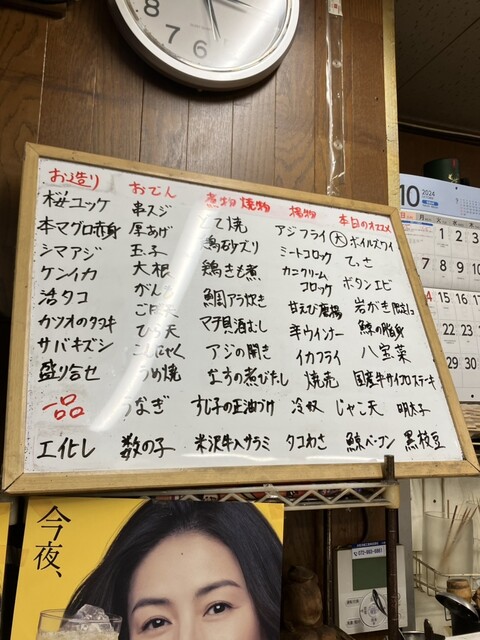 8
7
6
5
お造り
桜ユッケ
本マグロ赤身
シマアジ
ケンイカ
活タコ
カツオのタタキ
サバキズシ
盛り合せ
一品
エイヒレ
おでん
串スジ
厚あげ
玉子
大根
ひら天
こんにゃく
うめ焼
うなぎ
数の子
煮物 焼物
どて焼
鶏砂ズリ
鶏きも煮
鯛アラ炊き
マテ貝酒むし
アジの開き
なすの煮びたし
すじ子の正油づけ
米沢牛入サラミ
揚物
アジフライ
ミートコロッケ
カニクリーム
コロッケ
甘えび唐揚
羊ウィンナー
イカフライ
焼売
冷奴
タコわさ
本日のオススメ
大 ボイルズワイ
てっさ
ボタンエビ
岩がき
鯨の脂身
八宝菜
国産牛サイコロステーキ
じゃこ天 明太子
鯨ベーコン 黒枝豆
10 2024
1 2 3
7 8 9 10
15 16 17
22 23
29 30
今夜、